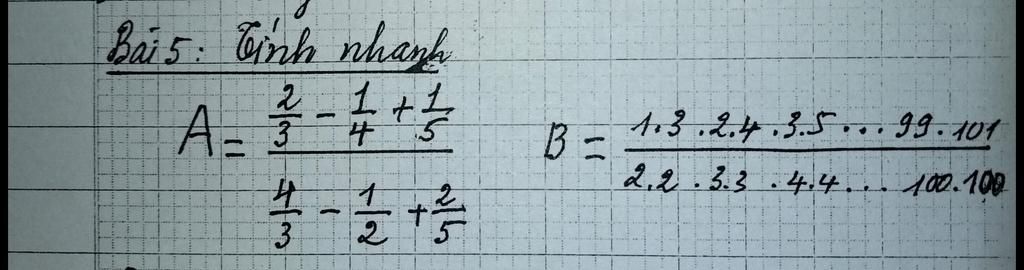 Bài 5: Tính nhanh
A = (2/3 - 1/4 + 1/5) / (4/3 - 1/2 + 2/5)
B = (1.3 . 2.4 . 3.5 ... 99.101) / (2.2 . 3.3 . 4.4 ... 100.100)